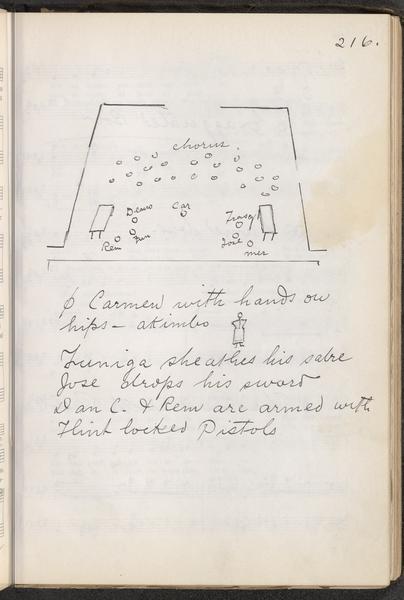 216.
chorus.
Car
Rem
José
mer
ϕ Carmen with hands on
hips - akimbo
Zuniga sheathes his sabre
José drops his sword
Dan C. & Rem are armed with
Flint locked Pistols